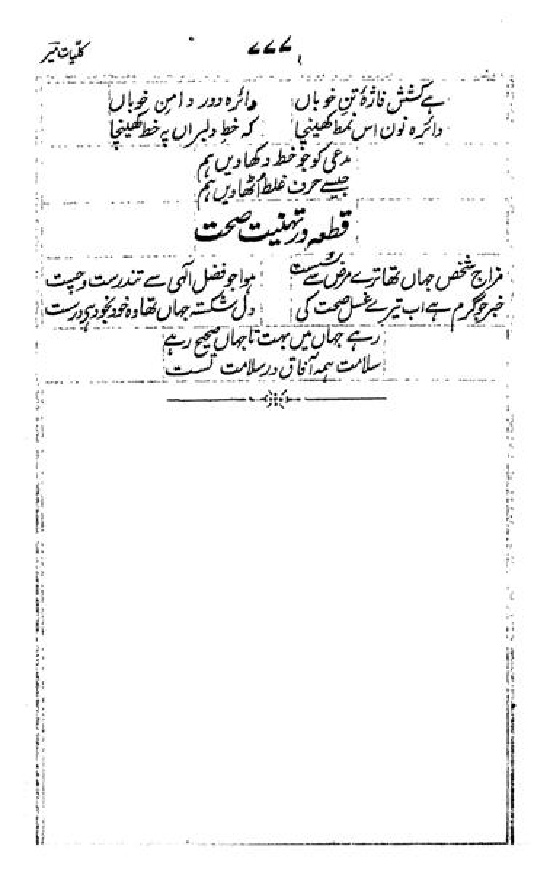 کلیات میر
۷۷۷
ہے کشش فازۂ تن خوباں دائرہ دور دامن خوباں
دائرہ نون اس نمط کھینچا کہ خط دلبراں پہ خط کھینچا
مدعی کو جو خط دکھاویں ہم
جیسے حرف غلط اٹھاویں ہم
قطعہ در تہنیت صحت
مزاج شخص جہاں تھا ترے مرض سے سست ہوا جو فضل الٰہی سے تندرست و چست
خبر جو گرم ہے اب تیرے غسل صحت کی دل شکستہ جہاں تھا وہ خود بخود ہی درست
رہے جہاں میں بہت تا جہاں صحیح رہے
سلامت ہمہ آفاق در سلامت تست